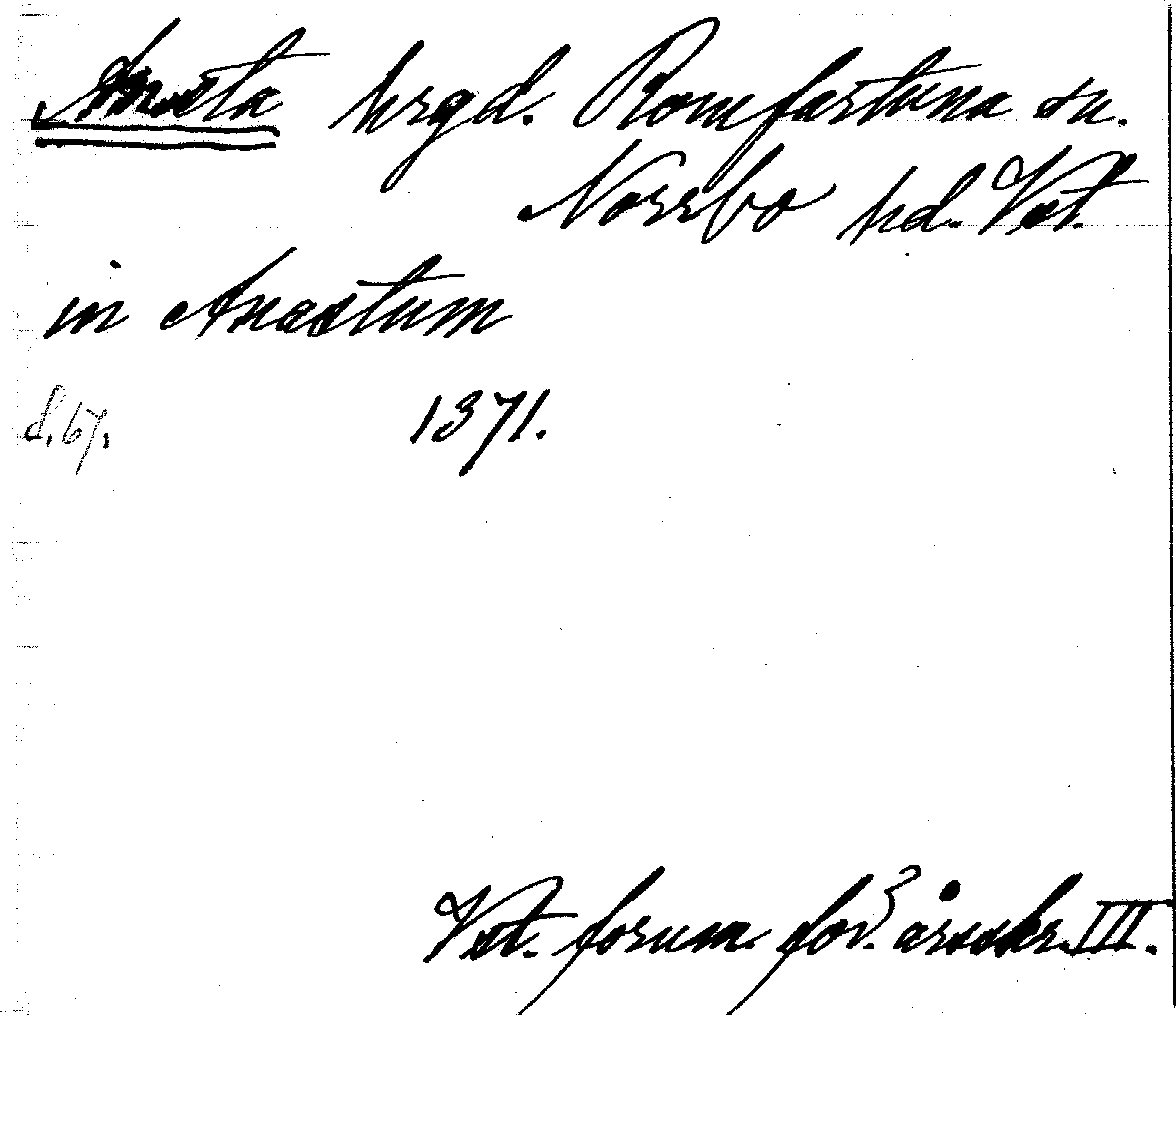 Ansta hrgd. Romfartuna sn.
Norrbo hd. Vstl.
in Anastum
S. 67. 1371.
Vstl. fornm. för. årsskr. III.